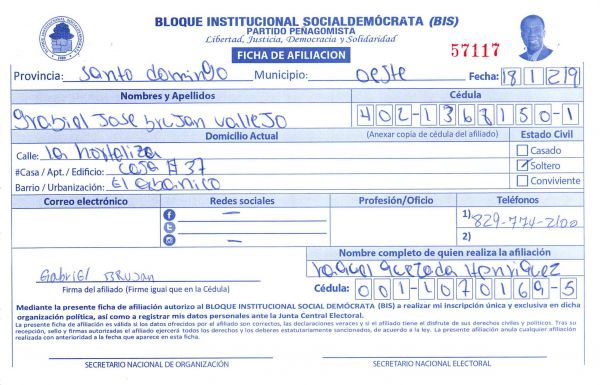 BLOQUE INSTITUCIONAL SOCIALDEMÓCRATA (BIS)
PARTIDO PEÑAGOMISTA
Libertad, Justicia, Democracia y Solidaridad
FICHA DE AFILIACION
57117
Provincia: Santo domingo Municipio: Oeste Fecha: 18/12/9
Nombres y Apellidos Cédula
Grabiel Jose brujan Vallejo 402-1367150-1
Domicilio Actual (Anexar copia de cédula del afiliado) Estado Civil
Calle: la hortaliza Casado
#Casa / Apt. / Edificio: Casa # 37 Soltero
Barrio / Urbanización: El abanico Conviviente
Correo electrónico Redes sociales Profesión/Oficio Teléfonos
1) 829-774-2100
2)
Nombre completo de quien realiza la afiliación
Gabriel Brujan Raquel Quezada Henriquez
Firma del afiliado (Firme igual que en la Cédula) Cédula: 001-1070169-5
Mediante la presente ficha de afiliación autorizo al BLOQUE INSTITUCIONAL SOCIAL DEMÓCRATA (BIS) a realizar mi inscripción única y exclusiva en dicha
organización política, así como a registrar mis datos personales ante la Junta Central Electoral.
La presente ficha de afiliación es válida si los datos ofrecidos por el afiliado son correctos, las declaraciones veraces y si el afiliado tiene el disfrute de sus derechos civiles y políticos. Tras su
recepción, sello y firmas autorizadas el afiliado ejercerá todos los derechos y los deberes estatutariamente sancionados, de acuerdo a la ley. La presente afiliación anula cualquier afiliación
realizada con anterioridad a la fecha que aparece en esta ficha.
SECRETARIO NACIONAL DE ORGANIZACIÓN SECRETARIO NACIONAL ELECTORAL